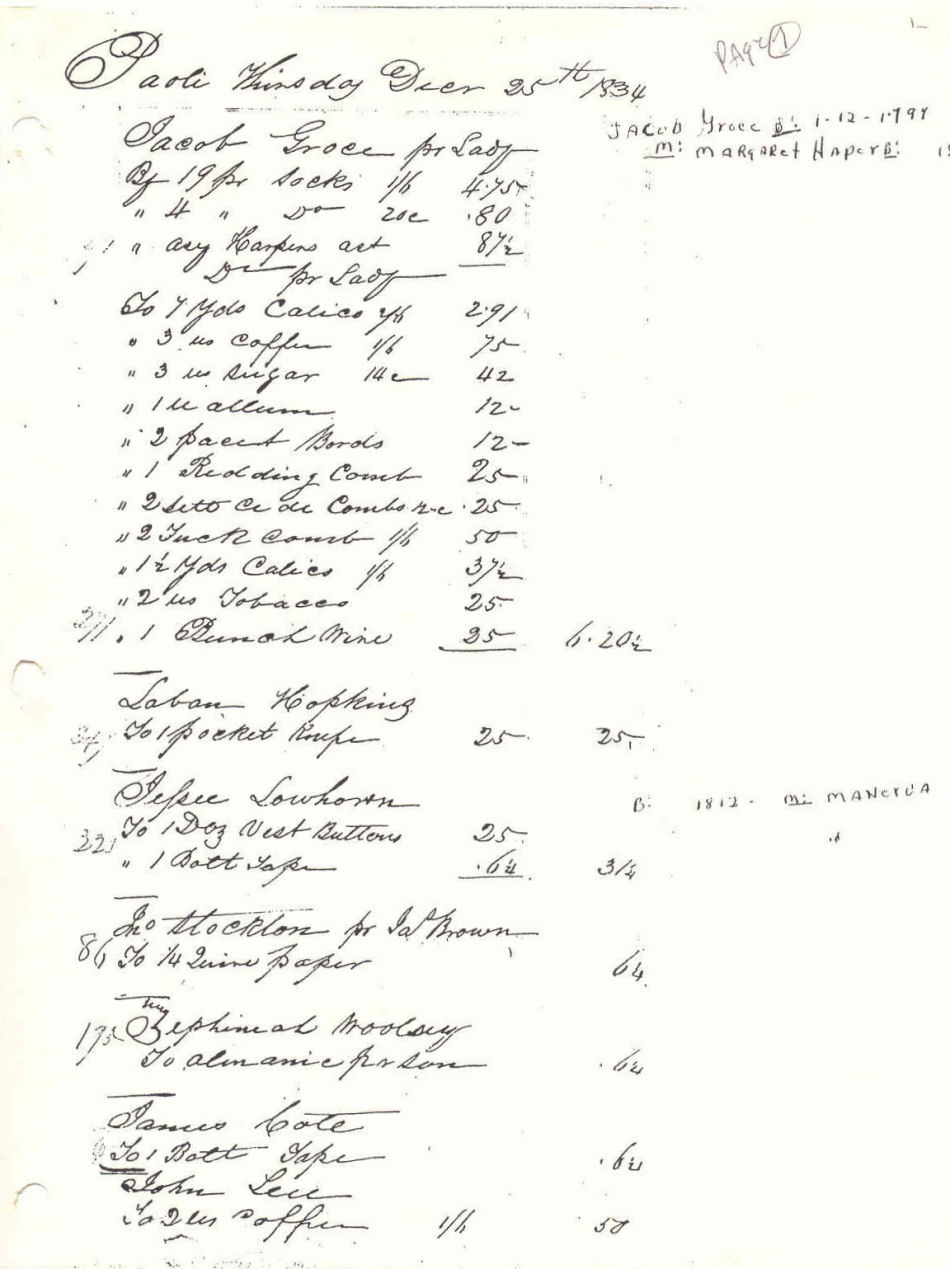 PAGE 1
Paoli Thursday Decr 25th 1834
Jacob Groce B: 1-12-1799
M: MARGARet HAPeR B:
Jacob Groce pr Lady
By 19 pr socks 1/6 4.75
" 4 " Do 20c .80
" Harpers act 87½
Dr pr Lady
To 7 Yds Calico 2/6 2.91
" 3 lls coffee 1/6 75
" 3 lls sugar 14c 42
" 1 ll allum 12-
" 2 12-
" 1 Redding Comb 25
" 2 Setts Combs .25
" 2 Tuck Comb 1/6 50
" 1½ Yds Calico 1/6 37½
" 2 lls Tobacco 25
" 1 Bunch Wire 25 6.20½
Laban Hopkins
To 1 pocket Knife 25 25
Jessee Lowhorn B: 1812- M: MANERVA
To 1 Doz Vest Buttons 25
" 1 Bolt Tape .6¼ 31¼
Jno Stockton pr Jas Brown
86 To 1/4 Quire paper 6¼
195 Zephiniah Woolsey
To almanic pr son .6¼
James Cote
To 1 Bolt Tape .6¼
John Lee
To 2 lls Coffee 1/6 50